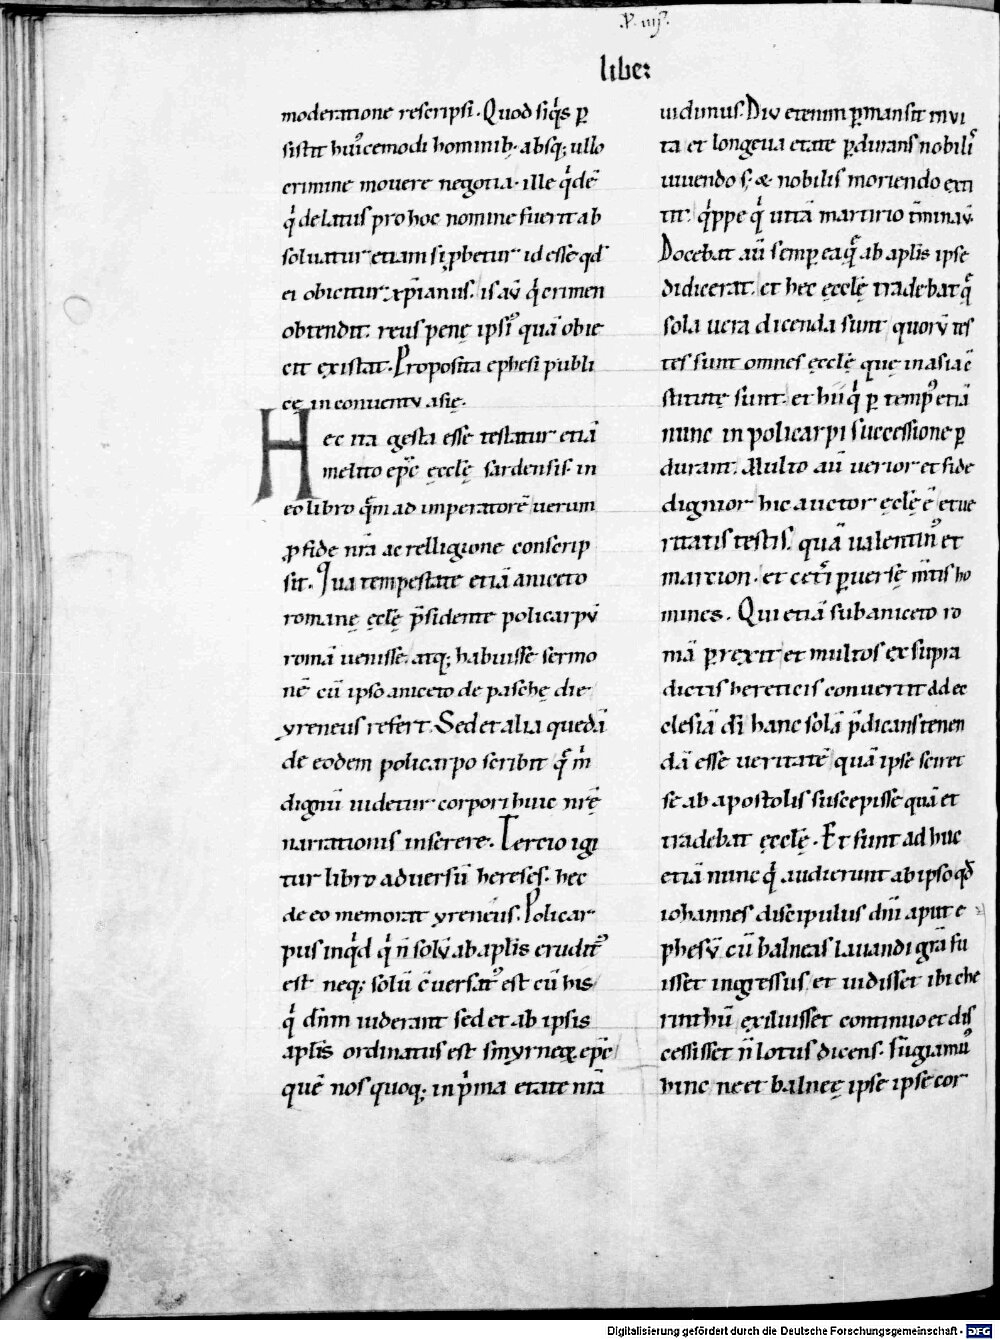 V. iiii.
liber
moderatione rescripsi. Quod siq̇s ꝑ
sistit hui᷒cemodi hominib; absq; ullo
crimine mouere negotia. ille q̇dē
q̇ delatus pro hoc nomine fuerit ab
soluatur etiam si ꝓbetur id esse qđ
ei obicitur xp̄ianus. is aū q̇ crimen
obtendit. reus penę ipsi᷒ quā obie
cit existat. Proposita ephesi publi
cę in conuentu asię.
Hec ita gesta esse testatur etiā
melito ep̄c ęcclę sardensis. in
eo libro quē ad imperatorē uerum
ꝓ fide nr̄a ac relligione conscrip
sit. Qua tempestate etiā aniceto
romanę ęclę p̄sidente policarpū
romā uenisse. atq; habuisse sermo
nē cū ipso aniceto de paschę die
yreneus refert. Sed et alia quedā
de eodem policarpo scribit quę m
dignū uidetur corpori huic nr̄ę
narrationis inserere. Tercio igi
tur libro aduersū hereses. hec
de eo memorat yreneus. Policar
pus inq̇d q̇ n̄ solū ab aplis erudit᷒
est neq; solū c̄uersat᷒ est cū his
q̇ dn̄m uiderant sed et ab ipsis
aplis ordinatus est smyrneę ep̄c
quē nos quoq; in ṗma etate nr̄a
uidimus. Diu etenim ꝑmansit in vi
ta et longeua etate ꝑdurans nobili᷒
uiuendo s; & nobilis moriendo exti
tit. q̇ppe q̇ uitā martirio t̄minauit.
Docebat aū semꝑ ea quę ab aplis ipse
didicerat. et hec ęcclę tradebat quę
sola uera dicenda sunt quorū tes
tes sunt omnes ęcclę quę in asia c̄
stitutę sunt. et hii q̇ ꝑ temp᷒ etiā
nunc in policarpi successione ꝑ
durant. Multo aū uerior et fide
dignior hic auctor ęclę ē et ue
ritatis testis. quā ualentin᷒ et
marcion. et cet̄i ꝑuersę m̄tis ho
mines. Qui etiā sub aniceto ro
mā ꝑrexit et multos ex supra
dictis hereticis conuertit ad ec
clesiā dī hanc solā p̄dicans tenen
dā esse ueritatē quā ipse sciret
se ab apostolis suscepisse quā et
tradebat ęcclę. Et sunt ad huc
etiā nunc q̇ audierunt ab ipso qđ
iohannes discipulus dn̄i aput e
phesū cū balneas lauandi gr̄a fu
isset ingressus et uidisset ibi che
rinthū exiluisset continuo et dis
cessisset n̄ lotus dicens. fugiamus
hinc ne et balneę ipse ipse cor
Digitalisierung gefördert durch die Deutsche Forschungsgemeinschaft - DFG